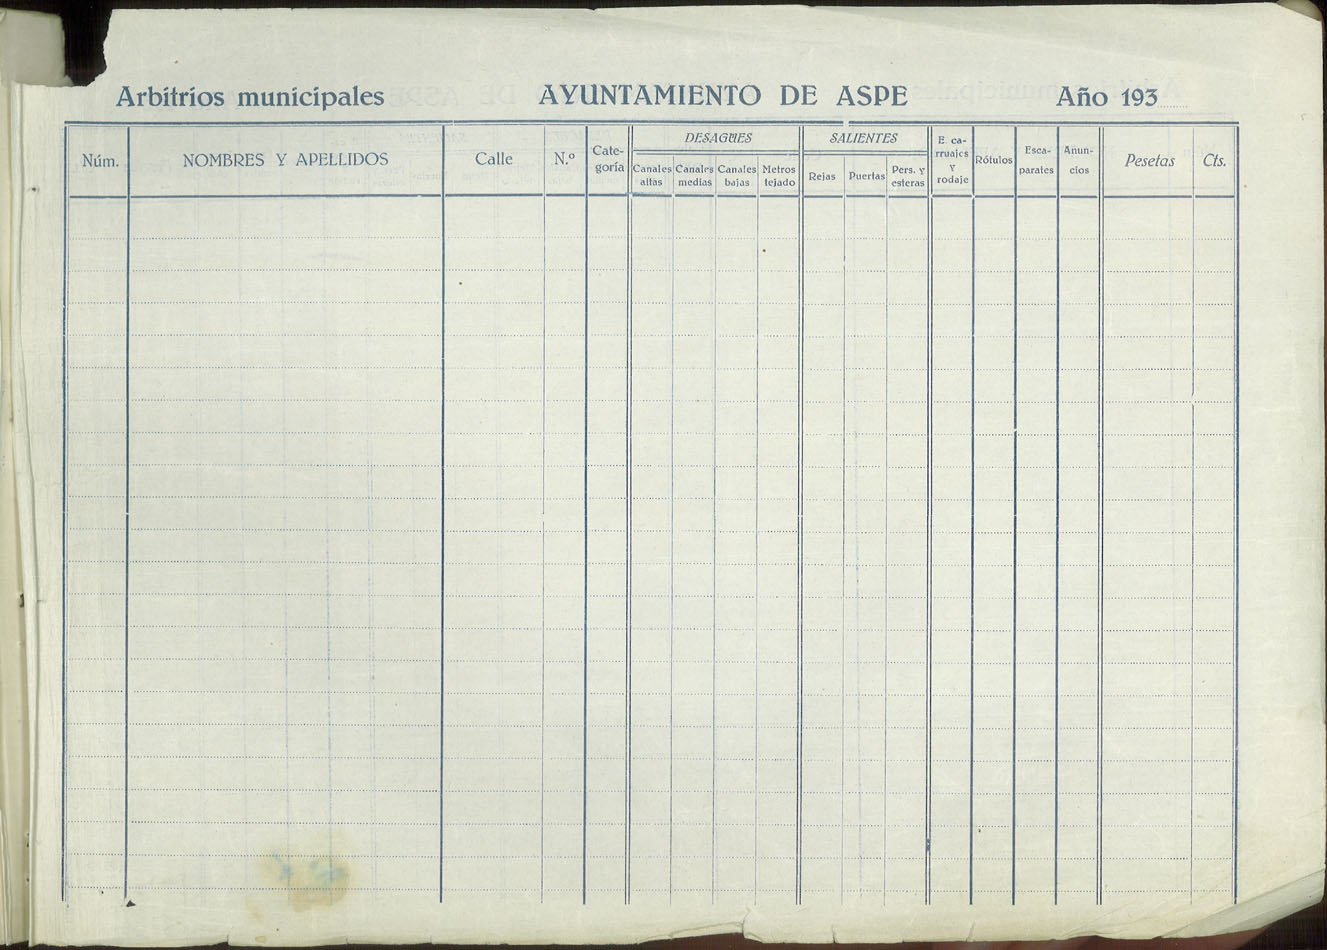 Arbitrios municipales AYUNTAMIENTO DE ASPE Año 193
Núm. NOMBRES Y APELLIDOS Calle N.º Cate-
goría
DESAGÜES
Canales
altas
Canales
medias
Canales
bajas
Metros
tejado
SALIENTES
Rejas
Puertas
Pers. y
esteras
E. ca-
rruajes
y
rodaje
Rótulos
Esca-
parates
Anun-
cios
Pesetas Cts.